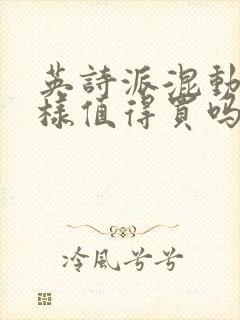 英詩派混動
樣值得買嗎
冷風兮兮